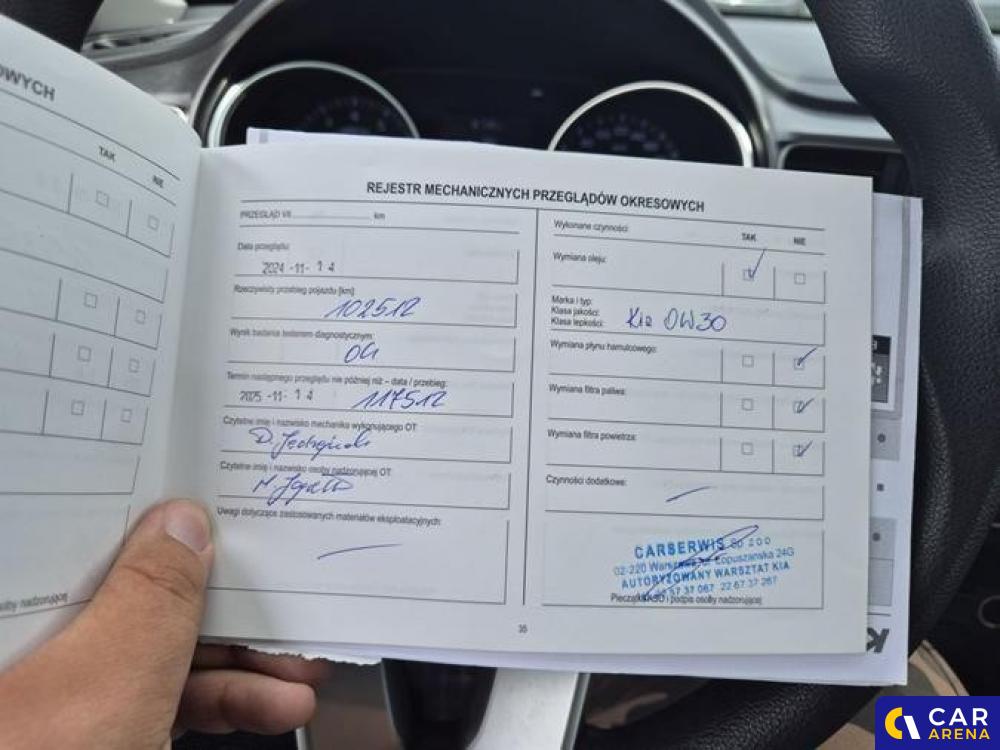 OWYCH
TAK
NIE
REJESTR MECHANICZNYCH PRZEGLĄDÓW OKRESOWYCH
PRZEGLĄD VII km
Data przeglądu:
2024 -11- 14
Rzeczywisty przebieg pojazdu [km]:
102512
Wynik badania testerem diagnostycznym:
OK
Termin następnego przeglądu nie później niż – data / przebieg:
2025 -11- 14 117512
Czytelne imię i nazwisko mechanika wykonującego OT:
D.
Czytelne imię i nazwisko osoby nadzorującej OT:
Uwagi dotyczące zastosowanych materiałów eksploatacyjnych:
Wykonane czynności:
TAK NIE
Wymiana oleju:
Marka i typ:
Klasa jakości:
Klasa lepkości:
Kia 0W30
Wymiana płynu hamulcowego:
Wymiana filtra paliwa:
Wymiana filtra powietrza:
Czynności dodatkowe:
CARSERWIS Sp. z o.o.
02-220 Warszawa, ul. Łopuszańska 24G
AUTORYZOWANY WARSZTAT KIA
22 57 37 067 22 67 37 267
Pieczątka ASO i podpis osoby nadzorującej
35
osoby nadzorującej
CAR
ARENA